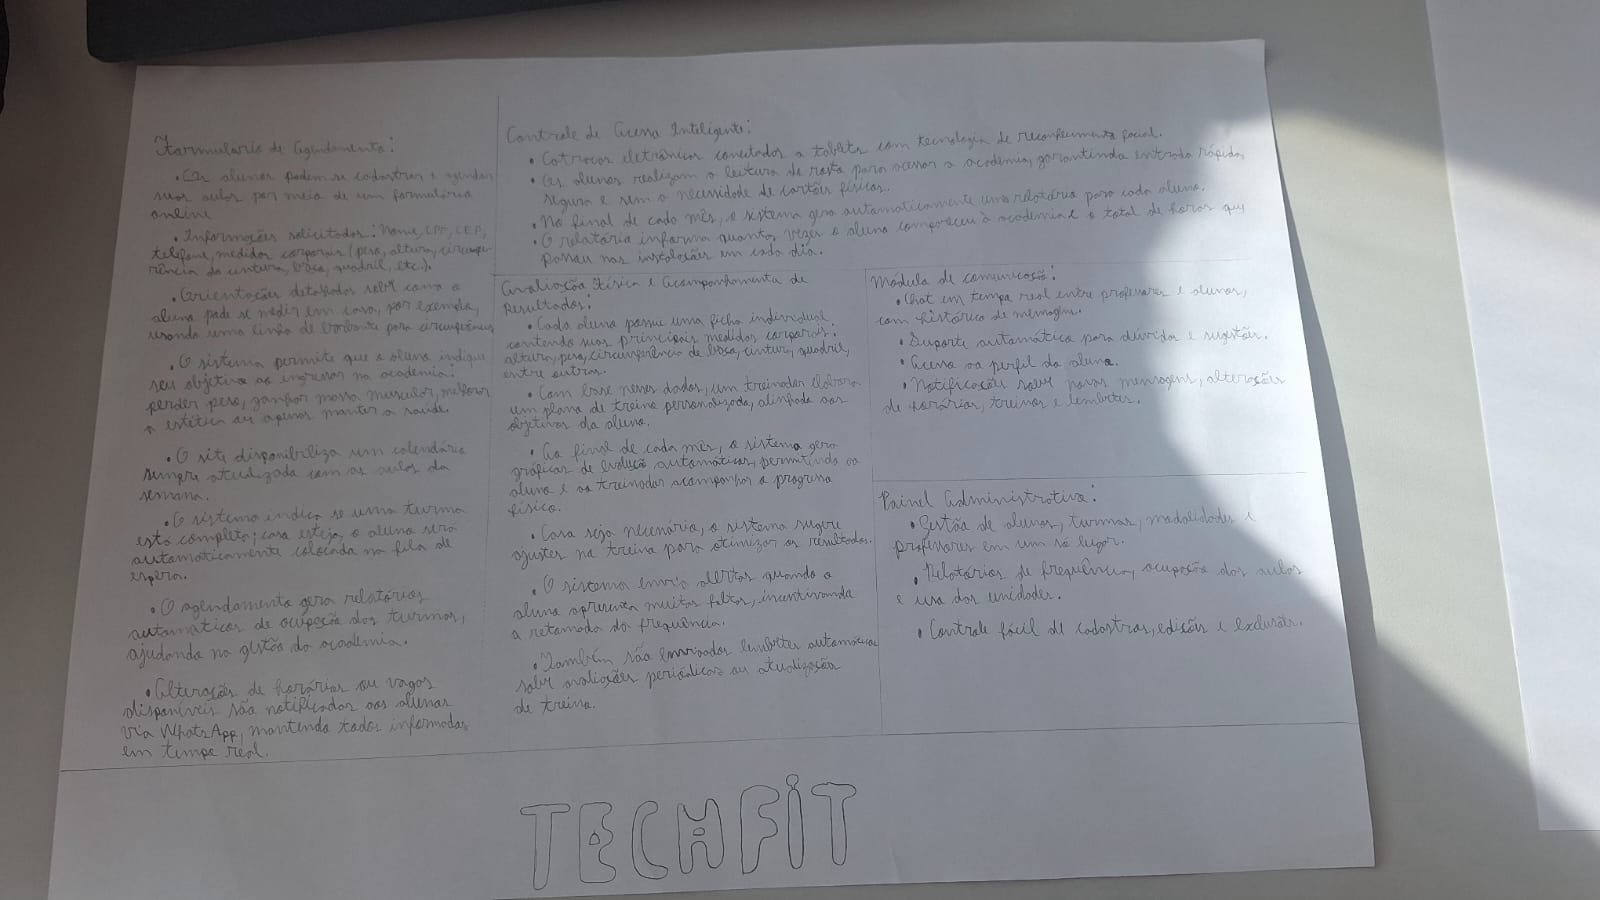 Formulario de Agendamento:
• Os alunos podem se cadastrar e agendar
suas aulas por meio de um formulário
online
• Informações solicitadas: nome, CPF, CEP,
telefone, medidas corporais (peso, altura, circunfe-
rência da cintura, coxa, quadril, etc.).
• Orientações detalhadas sobre como o
aluno pode se medir em casa, por exemplo,
usando uma linha de barbante para circunferência
• O sistema permite que o aluno indique
seu objetivo ao ingressar na academia:
perder peso, ganhar massa muscular, melhorar
a estética ou apenas manter a saúde.
• O site disponibiliza um calendário
sempre atualizado com as aulas da
semana.
• O sistema indica se uma turma
está completa; caso esteja, o aluno será
automaticamente colocado na fila de
espera.
• O agendamento gera relatórios
automáticos de ocupação das turmas,
ajudando na gestão da academia.
• Alteração de horários ou vagas
disponíveis são notificadas aos alunos
via WhatsApp, mantendo todos informados
em tempo real.
Controle de Acesso Inteligente:
• Catracas eletrônicas conectadas a tablets com tecnologia de reconhecimento facial.
• Os alunos realizam a leitura de rosto para acessar a academia, garantindo entrada rápida,
segura e sem a necessidade de cartões físicos.
• No final de cada mês, o sistema gera automaticamente uma relatório para cada aluno.
• O relatório informa quantas vezes o aluno compareceu à academia e o total de horas que
passou nas instalações em cada dia.
Avaliação Física e Acompanhamento de
Resultados:
• Cada aluno possui uma ficha individual
contendo suas principais medidas corporais:
altura, peso, circunferência de coxa, cintura, quadril,
entre outras.
• Com base nesses dados, um treinador elabora
um plano de treino personalizado, alinhado aos
objetivos do aluno.
• Ao final de cada mês, o sistema gera
gráficos de evolução automáticos, permitindo ao
aluno e ao treinador acompanhar o progresso
físico.
• Caso seja necessário, o sistema sugere
ajustes no treino para otimizar os resultados.
• O sistema envia alertas quando o
aluno apresenta muitas faltas, incentivando
a retomada da frequência.
• Também são enviados lembretes automáticos
sobre avaliações periódicas ou atualização
de treino.
Módulo de comunicação:
• Chat em tempo real entre professores e alunos,
com histórico de mensagem.
• Suporte automático para dúvidas e sugestões.
• Acesso ao perfil do aluno.
• Notificações sobre novas mensagens, alterações
de horários, treinos e lembretes.
Painel Administrativo:
• Gestão de alunos, turmas, modalidades e
professores em um só lugar.
• Relatórios de frequência, ocupação das aulas
e uso das unidades.
• Controle fácil de cadastros, edições e exclusões.
TECHFIT